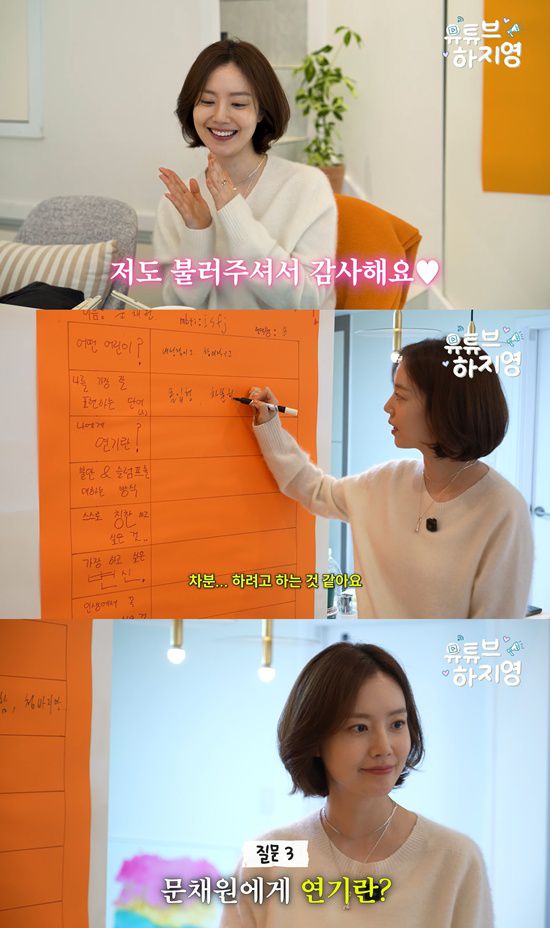 유튜브
하지영
저도 불러주셔서 감사해요♥
이름: 문채원
mbti: isfj
유튜브
하지영
어떤 어린이?
나를 가장 잘
표현하는 단어
나에게
연기란?
불안 & 슬럼프를
대하는 방식
스스로 칭찬해주고
싶은 것..
가장 하고 싶은
변신.
인생에서 꼭
차분... 하려고 하는 것 같아요
유튜브
하지영
질문 3
문채원에게 연기란?